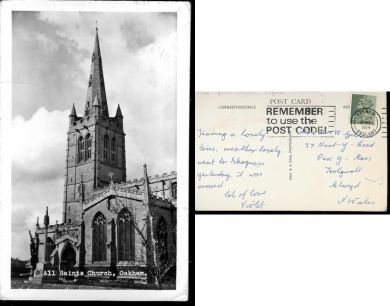 All Saints Church, Oakham.
CORRESPONDENCE
POST CARD
REMEMBER
to use the
POST CODE!
1974
Having a lovely
time, weather lovely
went to Skegness
yesterday it was
crowded
lots of love
Violet
37 Nant-y-Coed
Pen-y-Maes
Holywell
Clwyd
N Wales